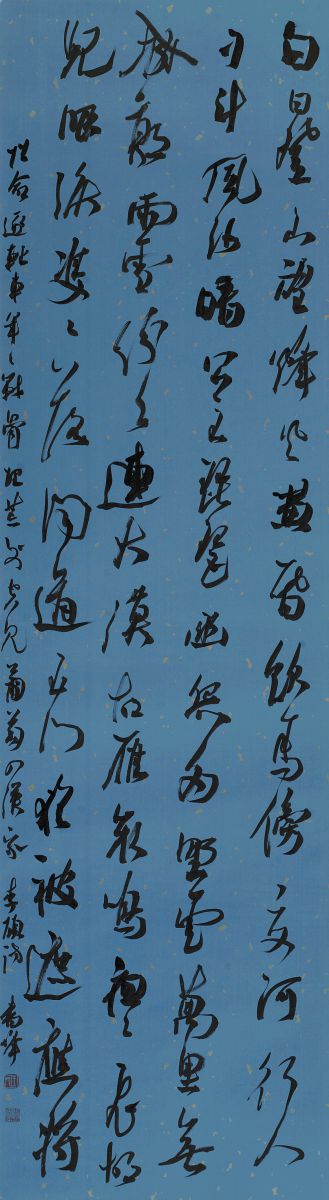 白日登山望烽火黃昏飲馬傍交河行人
刁斗風沙暗公主琵琶幽怨多野雲萬里無
城郭雨雪紛紛連大漠胡雁哀鳴夜夜飛胡
兒眼淚雙雙落聞道玉門猶被遮應將
性命逐輕車年年戰骨埋荒外空見葡萄入漢家 李頎詩